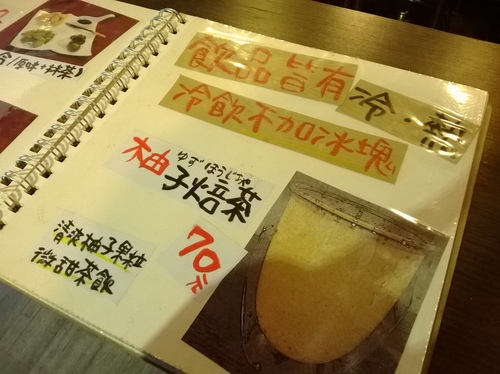 合(原味+抹茶)
飲品皆有冷、熱
冷飲不加冰塊
ゆずほうじちゃ
柚子焙茶
清爽柚子果粒
微甜茶飲
70元